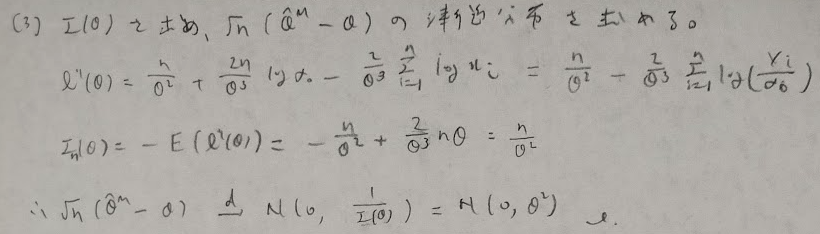 (3) I(θ) を求め、√n (θ̂ᴹ - θ) の漸近分布を求める。
l''(θ) = n/θ² + 2n/θ³ log α₀ - 2/θ³ Σᵢ₌₁ⁿ log xᵢ = n/θ² - 2/θ³ Σᵢ₌₁ⁿ log(Xᵢ/α₀)
Iₙ(θ) = - E(l''(θ)) = - n/θ² + 2/θ³ nθ = n/θ²
∴ √n (θ̂ᴹ - θ) →ᵈ N(0, 1/I(θ)) = N(0, θ²)